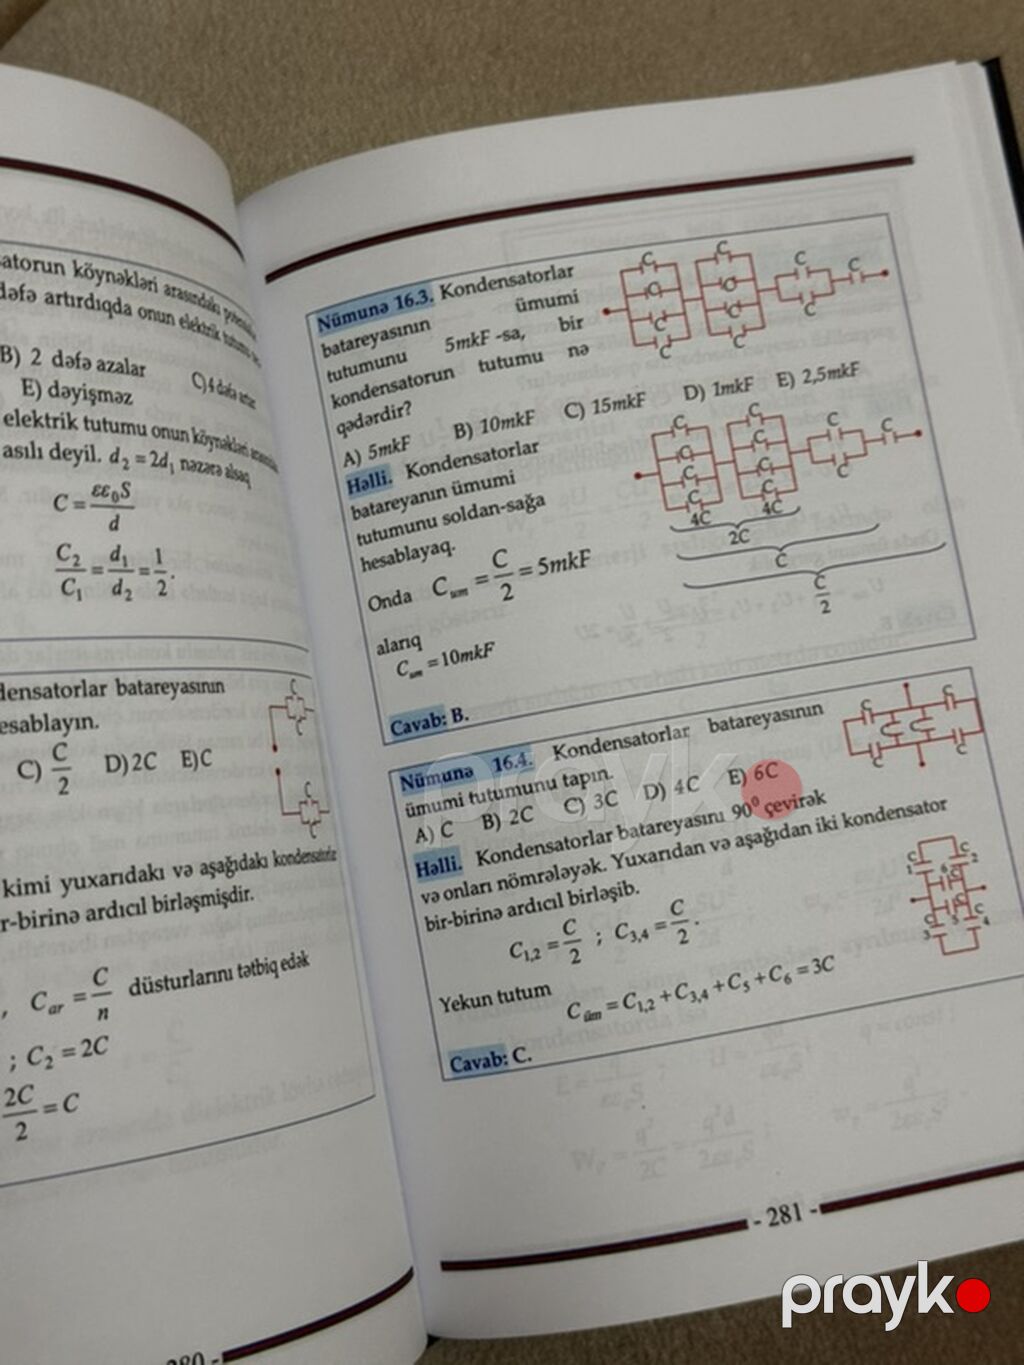 satorun köynəkləri arasındakı
dəfə artırdıqda onun elektrik tutumu
B) 2 dəfə azalar C) 4 dəfə artar
E) dəyişməz
elektrik tutumu onun köynəkləri
asılı deyil. d₂ = 2d₁ nəzərə alsaq
C = εε₀S / d
C₂ / C₁ = d₁ / d₂ = 1 / 2.
densatorlar batareyasının
esablayın.
C) C/2 D) 2C E) C
kimi yuxarıdakı və aşağıdakı kondensatorlar
r-birinə ardıcıl birləşmişdir.
, C_ar = C/n düsturlarını tətbiq edək
; C₂ = 2C
2C / 2 = C
280 -
Nümunə 16.3. Kondensatorlar
batareyasının ümumi
tutumunu 5mkF -sa, bir
kondensatorun tutumu nə
qədərdir?
A) 5mkF B) 10mkF C) 15mkF D) 1mkF E) 2,5mkF
Həlli. Kondensatorlar
batareyanın ümumi
tutumunu soldan-sağa
hesablayaq.
Onda C_um = C/2 = 5mkF
alarıq
C_um = 10mkF
C C C C
C C C
C C
C C
C C C C
C C C
C C
C C
4C 4C
2C
C
C/2
Cavab: B.
Nümunə 16.4. Kondensatorlar batareyasının
ümumi tutumunu tapın.
A) C B) 2C C) 3C D) 4C E) 6C
C C
C C
C C
Həlli. Kondensatorlar batareyasını 90⁰ çevirək
və onları nömrələyək. Yuxarıdan və aşağıdan iki kondensator
bir-birinə ardıcıl birləşib.
C₁,₂ = C/2 ; C₃,₄ = C/2 .
C C
1 6 C 2
C C C
3 5 4
Yekun tutum C_üm = C₁,₂ + C₃,₄ + C₅ + C₆ = 3C
Cavab: C.
- 281 -
prayko
prayko